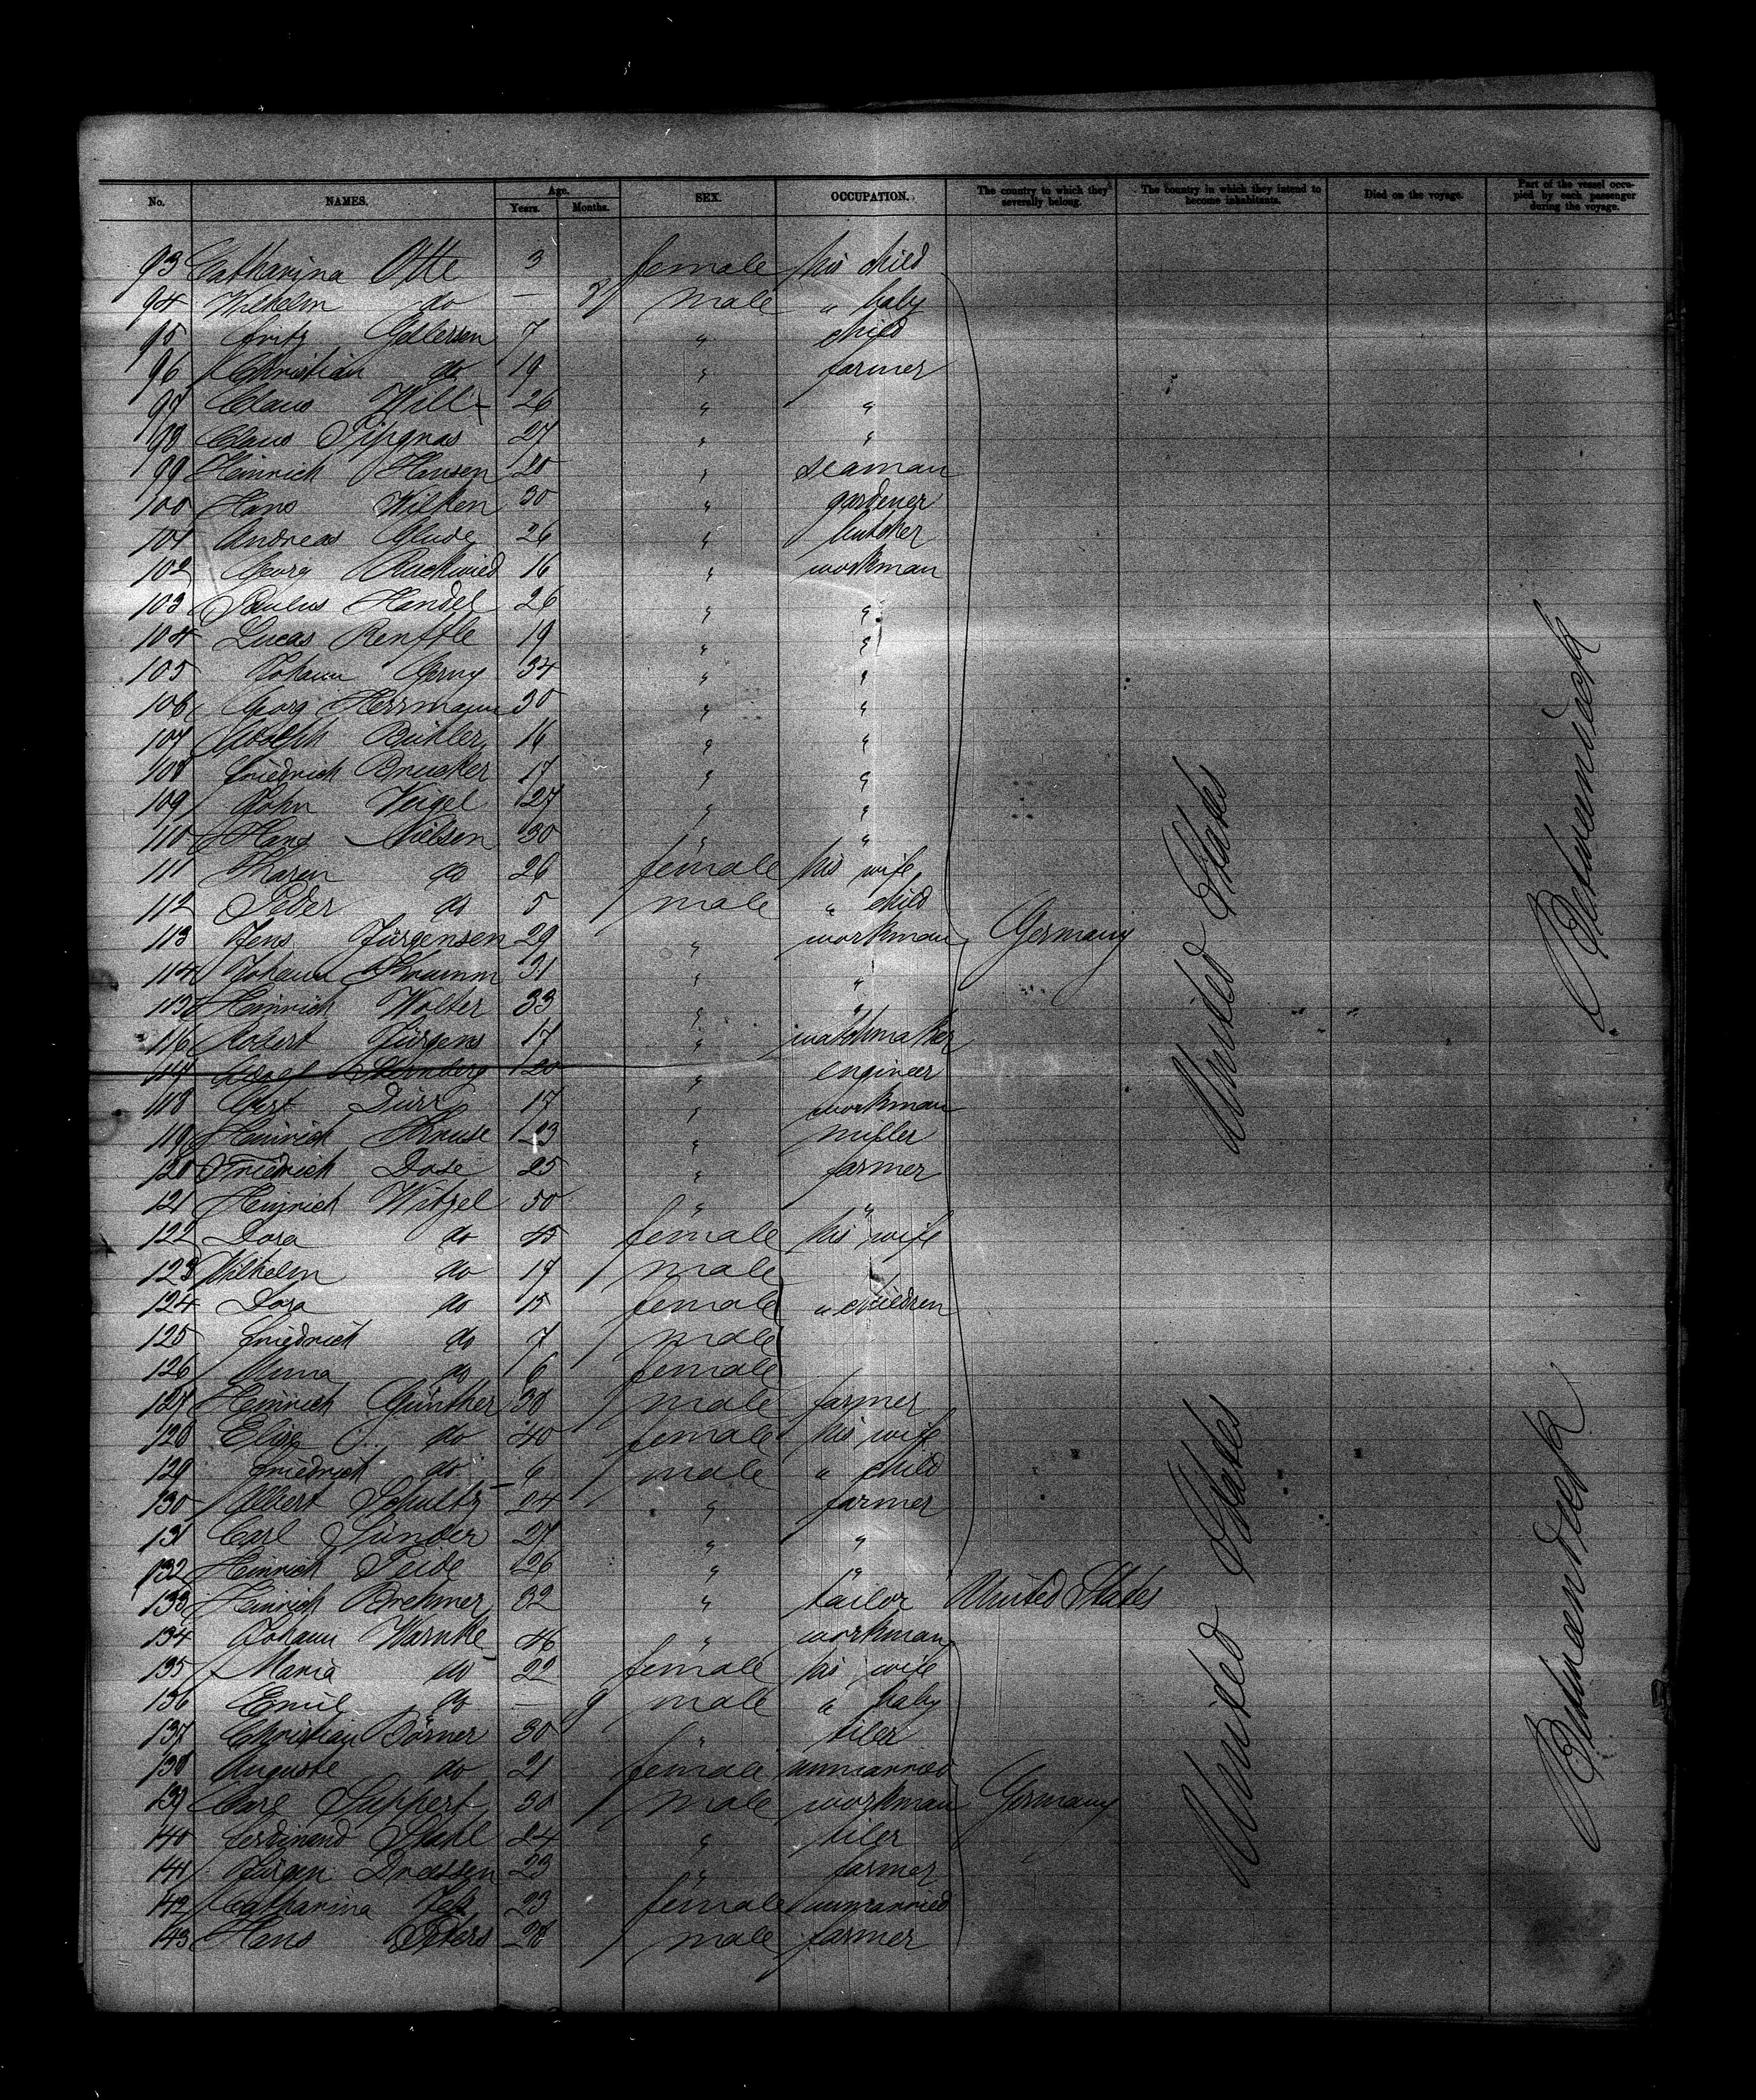 No. NAMES. Age. Years. Months. SEX. OCCUPATION. The country to which they severally belong. The country in which they intend to become inhabitants. Died on the voyage. Part of the vessel occupied by each passenger during the voyage.
93 Catharina Otte 3 female his child
94 Wilhelm do — male " baby
95 Fritz Gellersen 7 " child
96 Christian do 19 " farmer
97 Claus Will 26 " "
98 Claus 27 " "
99 Heinrich Hansen 20 " seaman
100 Hans Wilken 30 " gardener
101 Andreas Glude 26 " butcher
102 Georg Ruckwied 16 " workman
103 Paulus Handel 26 " "
104 Lucas Renftle 19 " "
105 Johann 34 " "
106 Georg Herrmann 30 " "
107 Adolph Bühler 16 " "
108 Friedrich Brucker 17 " "
109 John Veigel 27 " "
110 Hans Nielsen 30 " "
111 Maren do 26 female his wife
112 Peder do 5 male " child
113 Jens Jürgensen 29 " workman Germany
114 Johann Thramm 31 " "
115 Heinrich Wolter 33 " "
116 Robert Jürgens 17 " watchmaker
117 Adolf Sternberg 20 " engineer
118 Dürr 17 " workman
119 Heinrich Kruse 23 " miller
120 Friedrich Dose 25 " farmer
121 Heinrich Witzel 50 " "
122 Dora do 45 female his wife
123 Wilhelm do 17 male
124 Dora do 15 female " children
125 Friedrich do 7 male
126 Minna do 6 female
127 Heinrich Günther 38 male farmer
128 Elise do 40 female his wife
129 Friedrich do 6 male " child
130 Albert Schultz 24 " farmer
131 Carl Sünder 27 " "
132 Heinrich Teide 26 " "
133 Heinrich Brehmer 32 " tailor United States
134 Johann Warnke 46 " workman
135 Maria do 22 female his wife
136 Emil do — 9 male " baby
137 Christian Börner 30 " tiler
138 Auguste do 21 female unmarried
139 Carl Suppert 30 male workman Germany
140 Ferdinand Stahl 24 " tiler
141 Jürgen Dressen 23 " farmer
142 Catharina 23 female unmarried
143 Hans Peters 28 male farmer
United States
United States
Betweendeck
Betweendeck